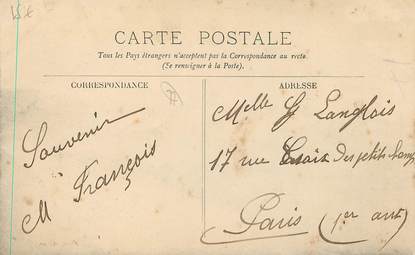 15€
CARTE POSTALE
Tous les Pays étrangers n'acceptent pas la Correspondance au recto
(Se renseigner à la Poste).
CORRESPONDANCE
Souvenir
M François
ADRESSE
Melle G Langlois
17 rue des petits champs
Paris (1er arrt)